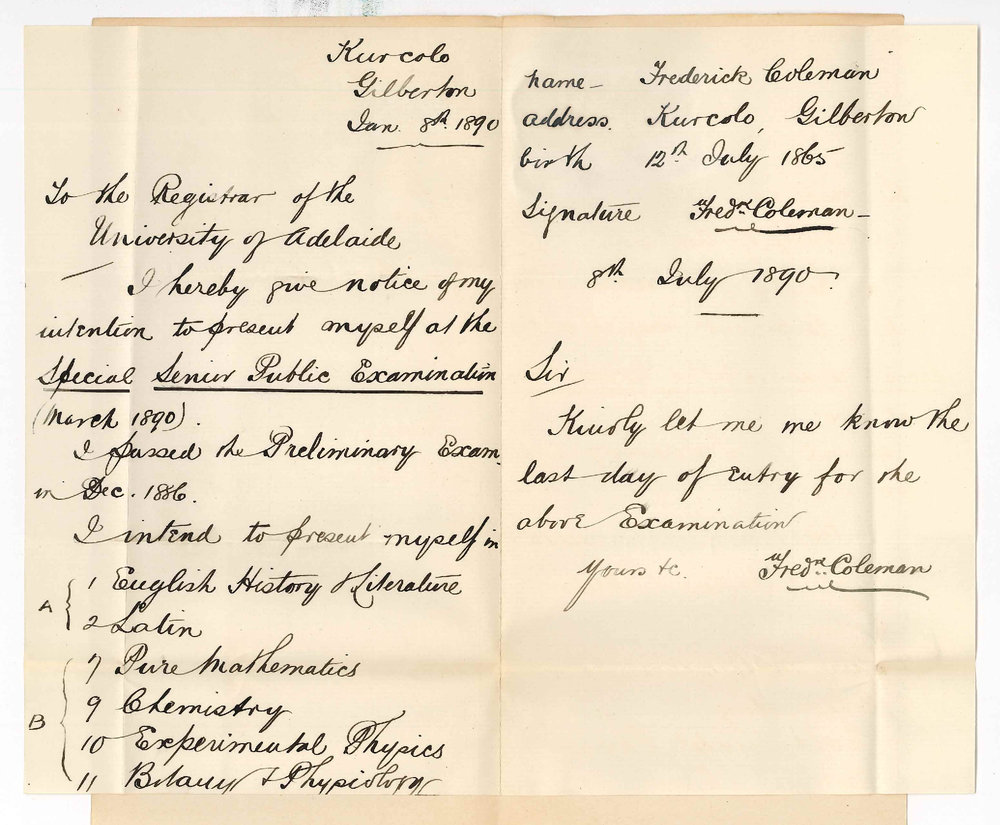 Kurcolo
Gilberton
Jan. 8th. 1890
To the Registrar of the
University of Adelaide
I hereby give notice of my
intention to present myself at the
Special Senior Public Examination
(March 1890).
I passed the Preliminary Exam.
in Dec. 1886.
I intend to present myself in
A
1 English History & Literature
2 Latin
B
7 Pure Mathematics
9 Chemistry
10 Experimental Physics
11 Botany & Physiology
name - Frederick Coleman
address. Kurcolo, Gilberton
birth 12th July 1865
Signature Fredk. Coleman -
8th July 1890.
Sir
Kindly let me me know the
last day of entry for the
above Examination
Yours &c. Fredk. Coleman